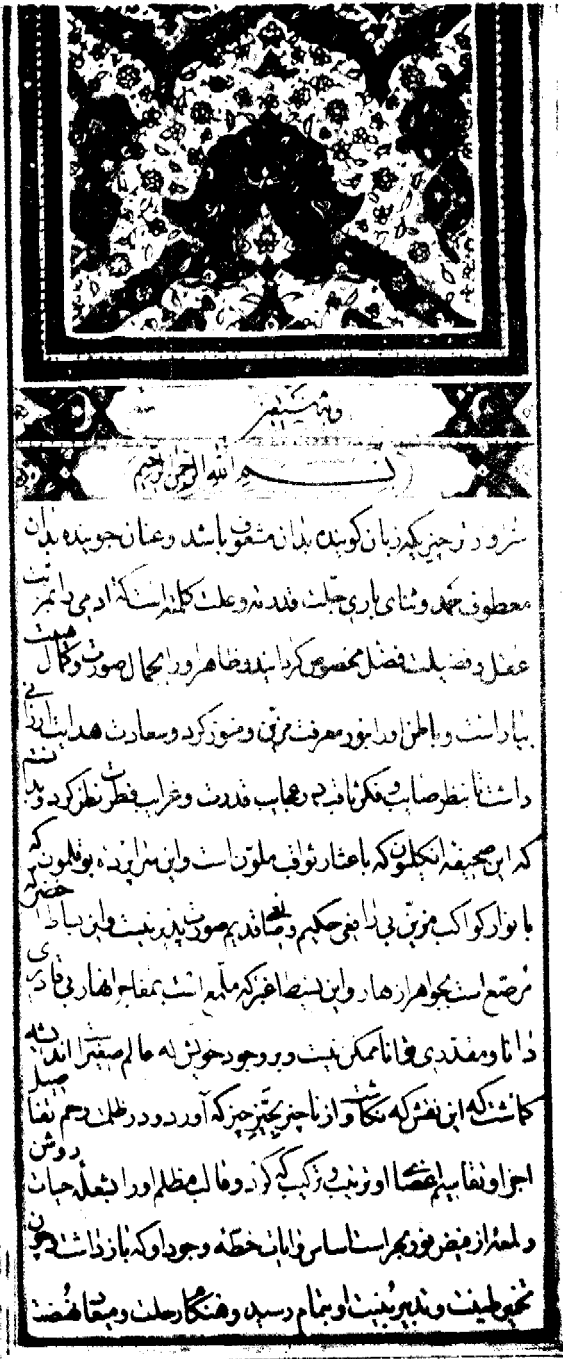 وبه نستعین
بسم الله الرحمن الرحیم
چیزیکه زبان کوینده بدان مشعوف باشد وعنان جوینده بدان
معطوف حمد وثنای باری جلت قدرته وعلت کلمته است که ادمی را بمزیت
عقل و فضیلت فضل مخصوص کردانید و ظاهر اورا بجمال صورت وکمال هیئت
بیاراست و باطن اورا بنور معرفت مزین و منور کرد وسعادت هدایت ارزانی
داشت تا بنظر صایب و فکر ثاقب در عجایب قدرت وغرایب فطرت نظر کرد وبدانستم
که این صحیفه انکلیون که باعشار ثواقب ملون است واین سراپرده بوقلمون که
بانوار کواکب مزین بی رافعی حکیم و صانعی قدیم صورت پذیر نیست واین بساط اخضر که
مرصع است بجواهر ازهار واین بسیط اغبر که ملمع است بمفاجر انهار بی قادری
دانا ومقتدری توانا ممکن نیست وبر وجود خویش که عالم صغیر است اندیشه
کماشت که این نقش که نکاشت واز ناچیز بچیز که آورد و در ظلمت رحم
اجزا و تفاسیم اعضا او ترتیب و ترکیب که کرد و قالب مظلم اورا بشعله حیات روشن
از فیض نور اساس رایات خطه وجود او که بازداشت وچون
تخمیر طینت و تدبیر بنیت او بتمام رسید وهنکام رحلت ومیعاد نهضت